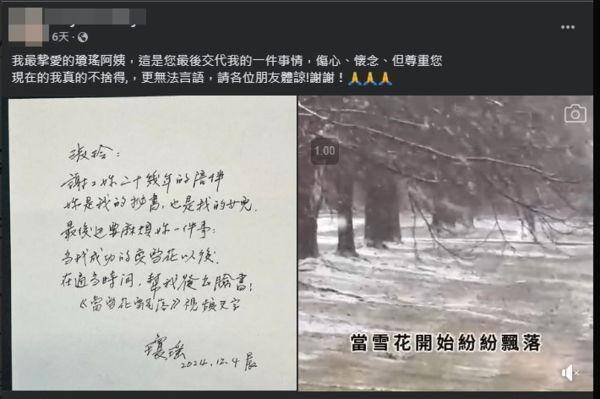 6天 ·
我最摯愛的瓊瑤阿姨，這是您最後交代我的一件事情，傷心、懷念、但尊重您
現在的我真的不捨得,，更無法言語，請各位朋友體諒!謝謝！🙏🙏🙏
淑玲：
謝謝妳二十幾年的陪伴
妳是我的秘書，也是我的女兒。
最後還要麻煩妳一件事：
當我成功的變雪花以後，
在適當時間，幫我發去臉書；
《當雪花飄落》視頻文字
瓊瑤
2024.12.4晨
1.00
當雪花開始紛紛飄落